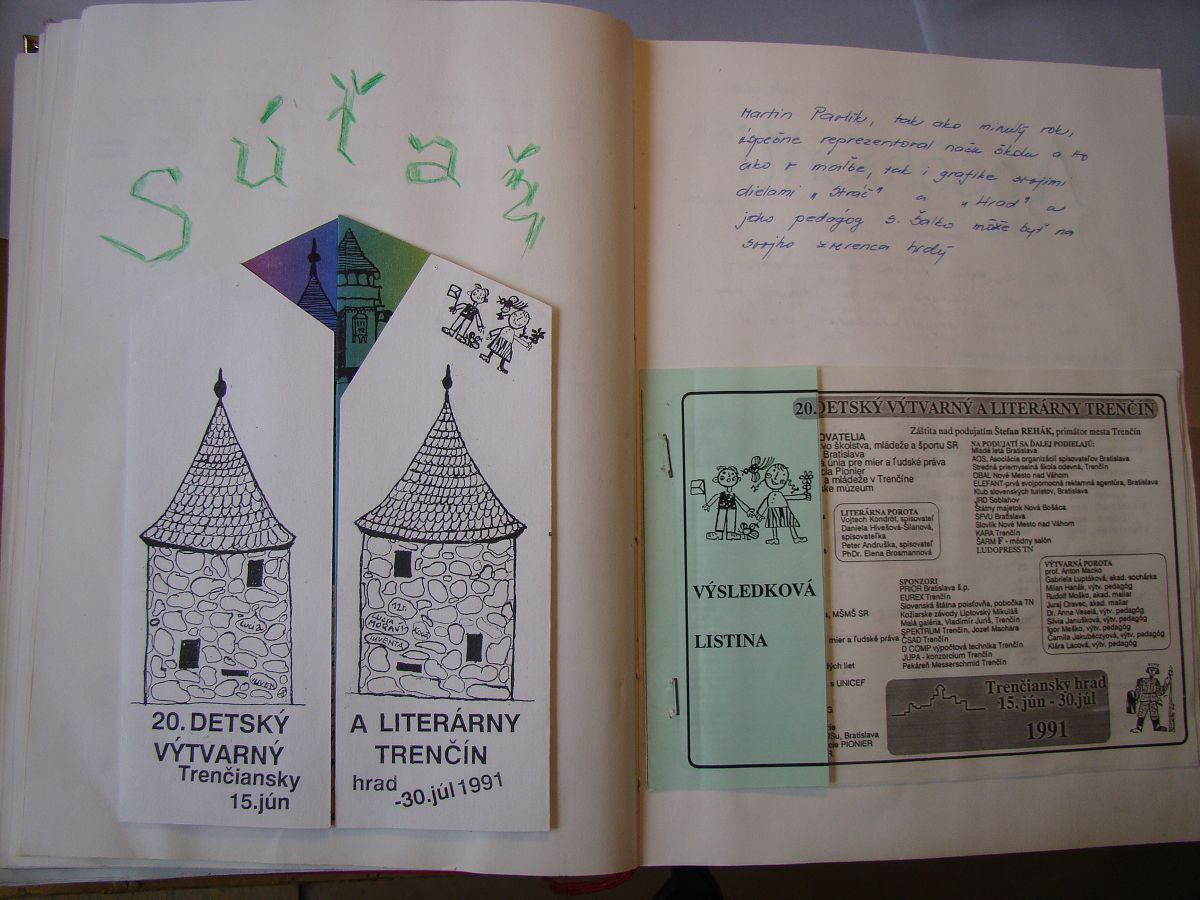 Súťaž
20. DETSKÝ
VÝTVARNÝ
Trenčiansky
15.jún
A LITERÁRNY
TRENČÍN
hrad
-30.júl 1991
Martin Pavlík, tak ako minulý rok,
úspešne reprezentoval našu školu a to
ako v maľbe, tak i grafike svojimi
dielami „Stráž" a „Hrad" a
jeho pedagóg s. Šatko môže byť na
svojho zverenca hrdý
VÝSLEDKOVÁ
LISTINA
20.DETSKÝ VÝTVARNÝ A LITERÁRNY TRENČÍN
Záštita nad podujatím Štefan REHÁK, primátor mesta Trenčín
OVATELIA
vo školstva, mládeže a športu SR
Bratislava
á únia pre mier a ľudské práva
cia Pionier
a mládeže v Trenčíne
ske múzeum
NA PODUJATÍ SA ĎALEJ PODIELAJÚ:
Mladé letá Bratislava
AOS, Asociácia organizácií spisovateľov Bratislava
Stredná priemyselná škola odevná, Trenčín
OBAL Nové Mesto nad Váhom
ELEFANT-prvá svojpomocná reklamná agentúra, Bratislava
Klub slovenských turistov, Bratislava
JRD Soblahov
Štátny majetok Nová Bošáca
SFVU Bratislava
Slovlik Nové Mesto nad Váhom
KARA Trenčín
ŠARM F - módny salón
LUDOPRESS TN
LITERÁRNA POROTA
Vojtech Kondrót, spisovateľ
Daniela Hivešová-Šilanová,
spisovateľka
Peter Andruška, spisovateľ
PhDr. Elena Brosmannová
SPONZORI
PRIOR Bratislava š.p.
EUREX Trenčín
Slovenská štátna poisťovňa, pobočka TN
Kožiarske závody Liptovský Mikuláš
Malá galéria, Vladimír Juriš, Trenčín
SPEKTRUM Trenčín, Jozef Machara
ČSAD Trenčín
D COMP výpočtová technika Trenčín
JUPA - konzorcium Trenčín
Pekáreň Messerschmid Trenčín
VÝTVARNÁ POROTA
prof. Anton Macko
Gabriela Luptáková, akad. sochárka
Milan Hanák, výtv. pedagóg
Rudolf Moško, akad. maliar
Juraj Oravec, akad. maliar
Dr. Anna Veselá, výtv. pedagóg
Silvia Janušková, výtv. pedagóg
Igor Meško, výtv. pedagóg
Camila Jakubéczyová, výtv. pedagóg
Klára Lacová, výtv. pedagóg
A, MŠMŠ SR
mier a ľudské práva
dých liet
s UNICEF
Su, Bratislava
PIONIER
Trenčiansky hrad
15. jún - 30.júl
1991